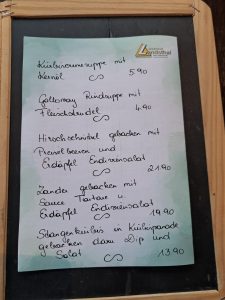 Kürbiscremesuppe mit
Kernöl 5.90
Galloway Rindsuppe mit
Fleischstrudel 4.90
Hirschschnitzel gebacken mit
Preiselbeeren und
Erdäpfel Endiviensalat
21.90
Zander gebacken mit
Sauce Tartare u
Erdäpfel Endiviensalat
19.90
Stangenkürbis in Kürbispanade
gebacken dazu Dip und
Salat 13.90